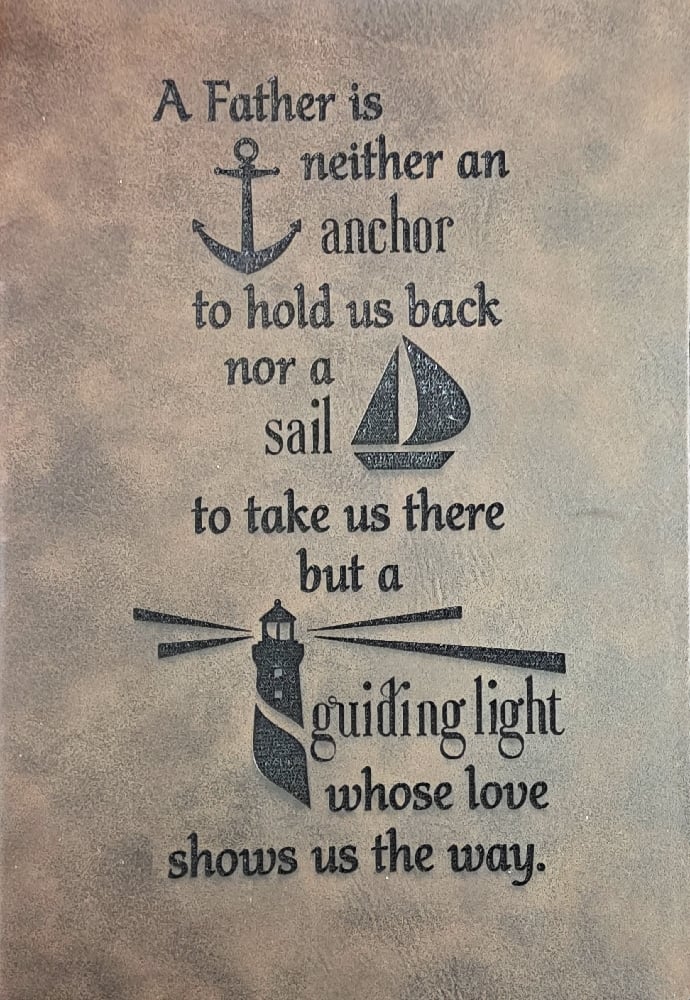 A Father is
neither an
anchor
to hold us back
nor a
sail
to take us there
but a
guiding light
whose love
shows us the way.